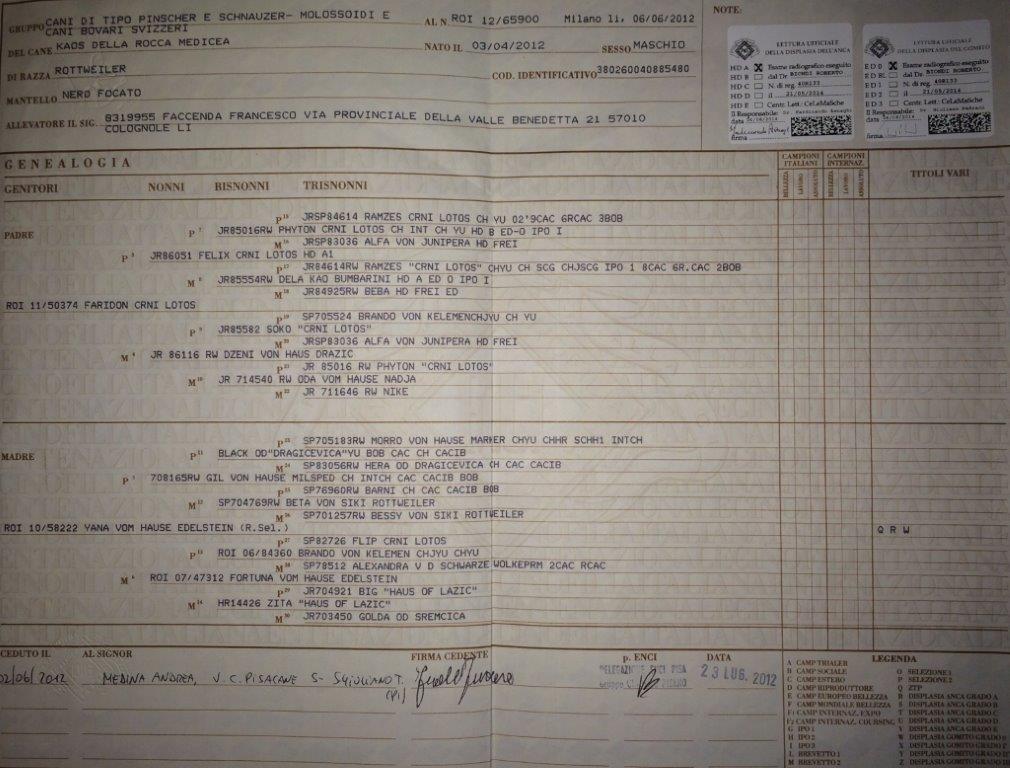 GRUPPO CANI DI TIPO PINSCHER E SCHNAUZER- MOLOSSOIDI E
CANI BOVARI SVIZZERI
AL N. ROI 12/65900 Milano li, 06/06/2012
DEL CANE KAOS DELLA ROCCA MEDICEA
NATO IL 03/04/2012 SESSO MASCHIO
DI RAZZA ROTTWEILER
COD. IDENTIFICATIVO 380260040885480
MANTELLO NERO FOCATO
ALLEVATORE IL SIG. 8319955 FACCENDA FRANCESCO VIA PROVINCIALE DELLA VALLE BENEDETTA 21 57010
COLOGNOLE LI
NOTE:
LETTURA UFFICIALE
DELLA DISPLASIA DELL'ANCA
HD A X Esame radiografico eseguito
HD B dal Dr. BIONDI ROBERTO
HD C N. di reg. 408133
HD D il 21/05/2014
HD E Centr. Lett.: CeLeMaSche
Il Responsabile: Dr.
data
firma
LETTURA UFFICIALE
DELLA DISPLASIA DEL GOMITO
ED 0 X Esame radiografico eseguito
ED BL dal Dr. BIONDI ROBERTO
ED 1 N. di reg. 408133
ED 2 il 21/05/2014
ED 3 Centr. Lett.: CeLeMaSche
Il Responsabile: Dr.
data
firma
GENEALOGIA
CAMPIONI ITALIANI
CAMPIONI INTERNAZ.
BELLEZZA LAVORO ASSOLUTO BELLEZZA LAVORO ASSOLUTO
TITOLI VARI
GENITORI NONNI BISNONNI TRISNONNI
P 15 JRSP84614 RAMZES CRNI LOTOS CH YU 02'9CAC 6RCAC 3BOB
PADRE
P 7 JR85016RW PHYTON CRNI LOTOS CH INT CH YU HD B ED-0 IPO I
M 16 JRSP83036 ALFA VON JUNIPERA HD FREI
P 3 JR86051 FELIX CRNI LOTOS HD A1
P 17 JR84614RW RAMZES "CRNI LOTOS" CHYU CH SCG CHJSCG IPO 1 8CAC 6R.CAC 2BOB
M 8 JR85554RW DELA KAO BUMBARINI HD A ED O IPO I
M 18 JR84925RW BEBA HD FREI ED
ROI 11/50374 FARIDON CRNI LOTOS
P 19 SP705524 BRANDO VON KELEMENCHJYU CH YU
P 9 JR85582 SOKO "CRNI LOTOS"
M 20 JRSP83036 ALFA VON JUNIPERA HD FREI
M 4 JR 86116 RW DZENI VON HAUS DRAZIC
P 21 JR 85016 RW PHYTON "CRNI LOTOS"
M 10 JR 714540 RW ODA VOM HAUSE NADJA
M 22 JR 711646 RW NIKE
P 23 SP705183RW MORRO VON HAUSE MARKER CHYU CHHR SCHH1 INTCH
MADRE
P 11 BLACK OD"DRAGICEVICA"YU BOB CAC CH CACIB
M 24 SP83056RW HERA OD DRAGICEVICA CH CAC CACIB
P 5 708165RW GIL VON HAUSE MILSPED CH INTCH CAC CACIB BOB
P 25 SP76960RW BARNI CH CAC CACIB BOB
M 12 SP704769RW BETA VON SIKI ROTTWEILER
M 26 SP701257RW BESSY VON SIKI ROTTWEILER
ROI 10/58222 YANA VOM HAUSE EDELSTEIN (R.Sel.) Q R W
P 27 SP82726 FLIP CRNI LOTOS
P 13 ROI 06/84360 BRANDO VON KELEMEN CHJYU CHYU
M 28 SP78512 ALEXANDRA V D SCHWARZE WOLKEPRM 2CAC RCAC
M 6 ROI 07/47312 FORTUNA VOM HAUSE EDELSTEIN
P 29 JR704921 BIG "HAUS OF LAZIC"
M 14 HR14426 ZITA "HAUS OF LAZIC"
M 30 JR703450 GOLDA OD SREMCICA
CEDUTO IL AL SIGNOR FIRMA CEDENTE p. ENCI DATA
02/06/2012 MEDINA ANDREA, V. C. PISACANE S- SGIULIANO T. (PI)
DELEGAZIONE ENCI PISA
23 LUG. 2012
LEGENDA
A CAMP TRIALER
B CAMP SOCIALE
C CAMP ESTERO
D CAMP RIPRODUTTORE
E CAMP EUROPEO BELLEZZA
F CAMP MONDIALE BELLEZZA
F1 CAMP INTERNAZ. EXPO
F2 CAMP INTERNAZ. COURSING
G IPO 1
H IPO 2
I IPO 3
L BREVETTO 1
M BREVETTO 2
O SELEZIONE 1
P SELEZIONE 2
Q ZTP
R DISPLASIA ANCA GRADO A
S DISPLASIA ANCA GRADO B
T DISPLASIA ANCA GRADO C
U DISPLASIA ANCA GRADO D
V DISPLASIA ANCA GRADO E
W DISPLASIA GOMITO GRADO 0
X DISPLASIA GOMITO GRADO
Y DISPLASIA GOMITO GRADO
Z DISPLASIA GOMITO GRADO